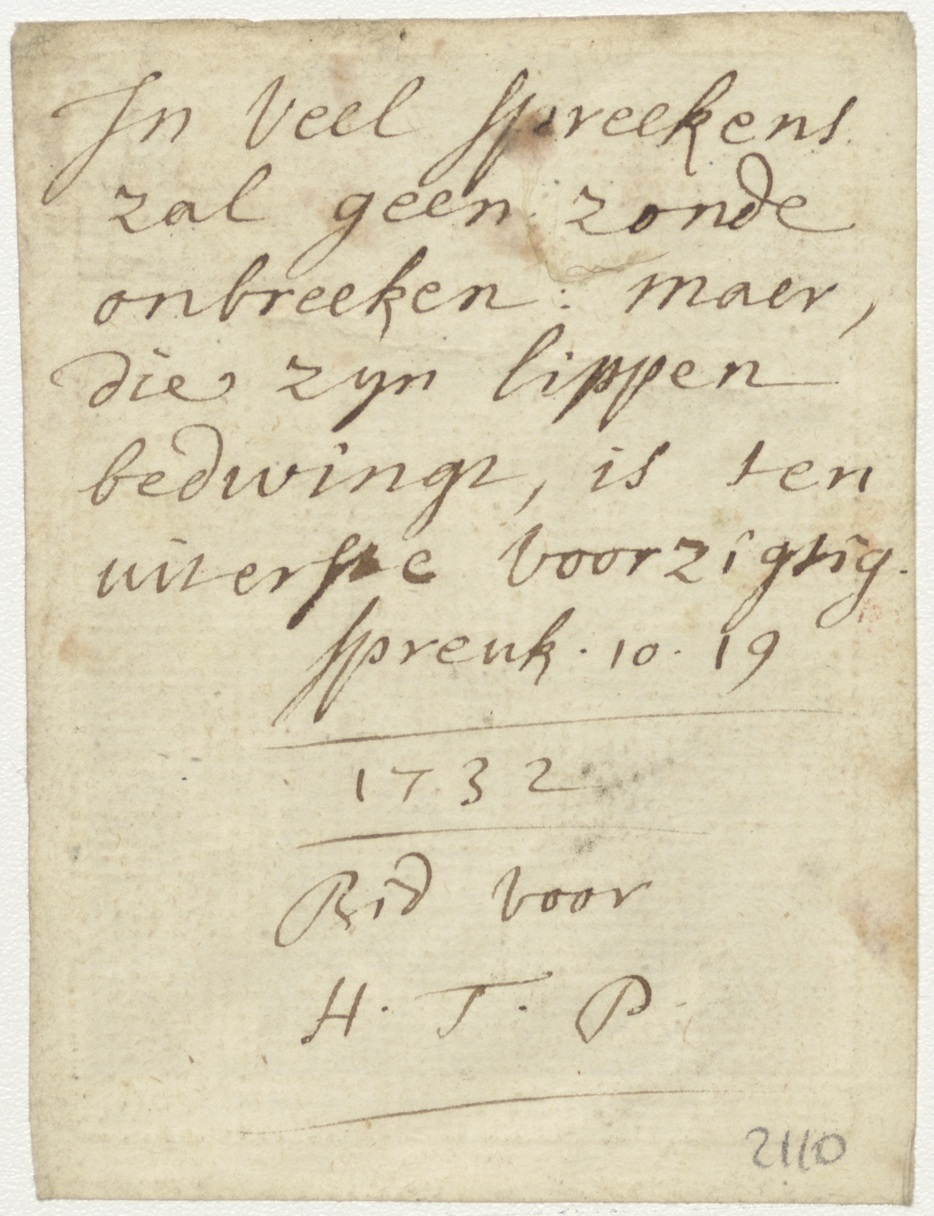 In veel spreekens
zal geen zonde
onbreeken: maer,
die zyn lippen
bedwingt, is ten
uiterste voorzigtig.
spreuk. 10. 19
1732
Bid voor
H. T. P.
2110